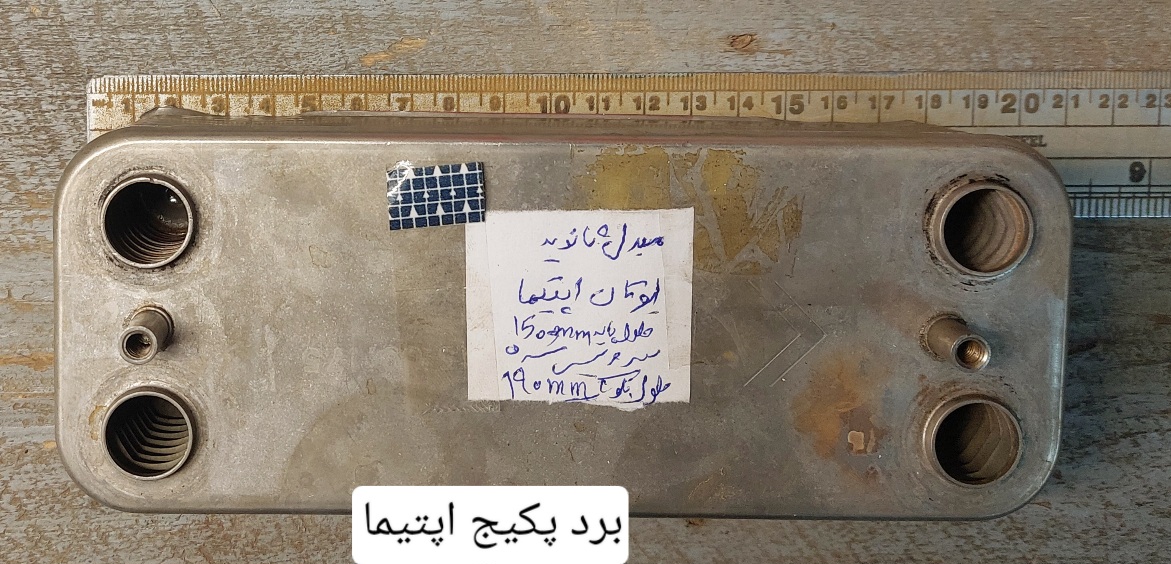 1 2 3 4 5 6 7 8 9 10 11 12 13 14 15 16 17 18 19 20 21 22
9
مبدل ثانویه
بوتان اپتیما
طول پایه 150mm
سرویس شده
طول بلوک 190mm
برد پکیج اپتیما